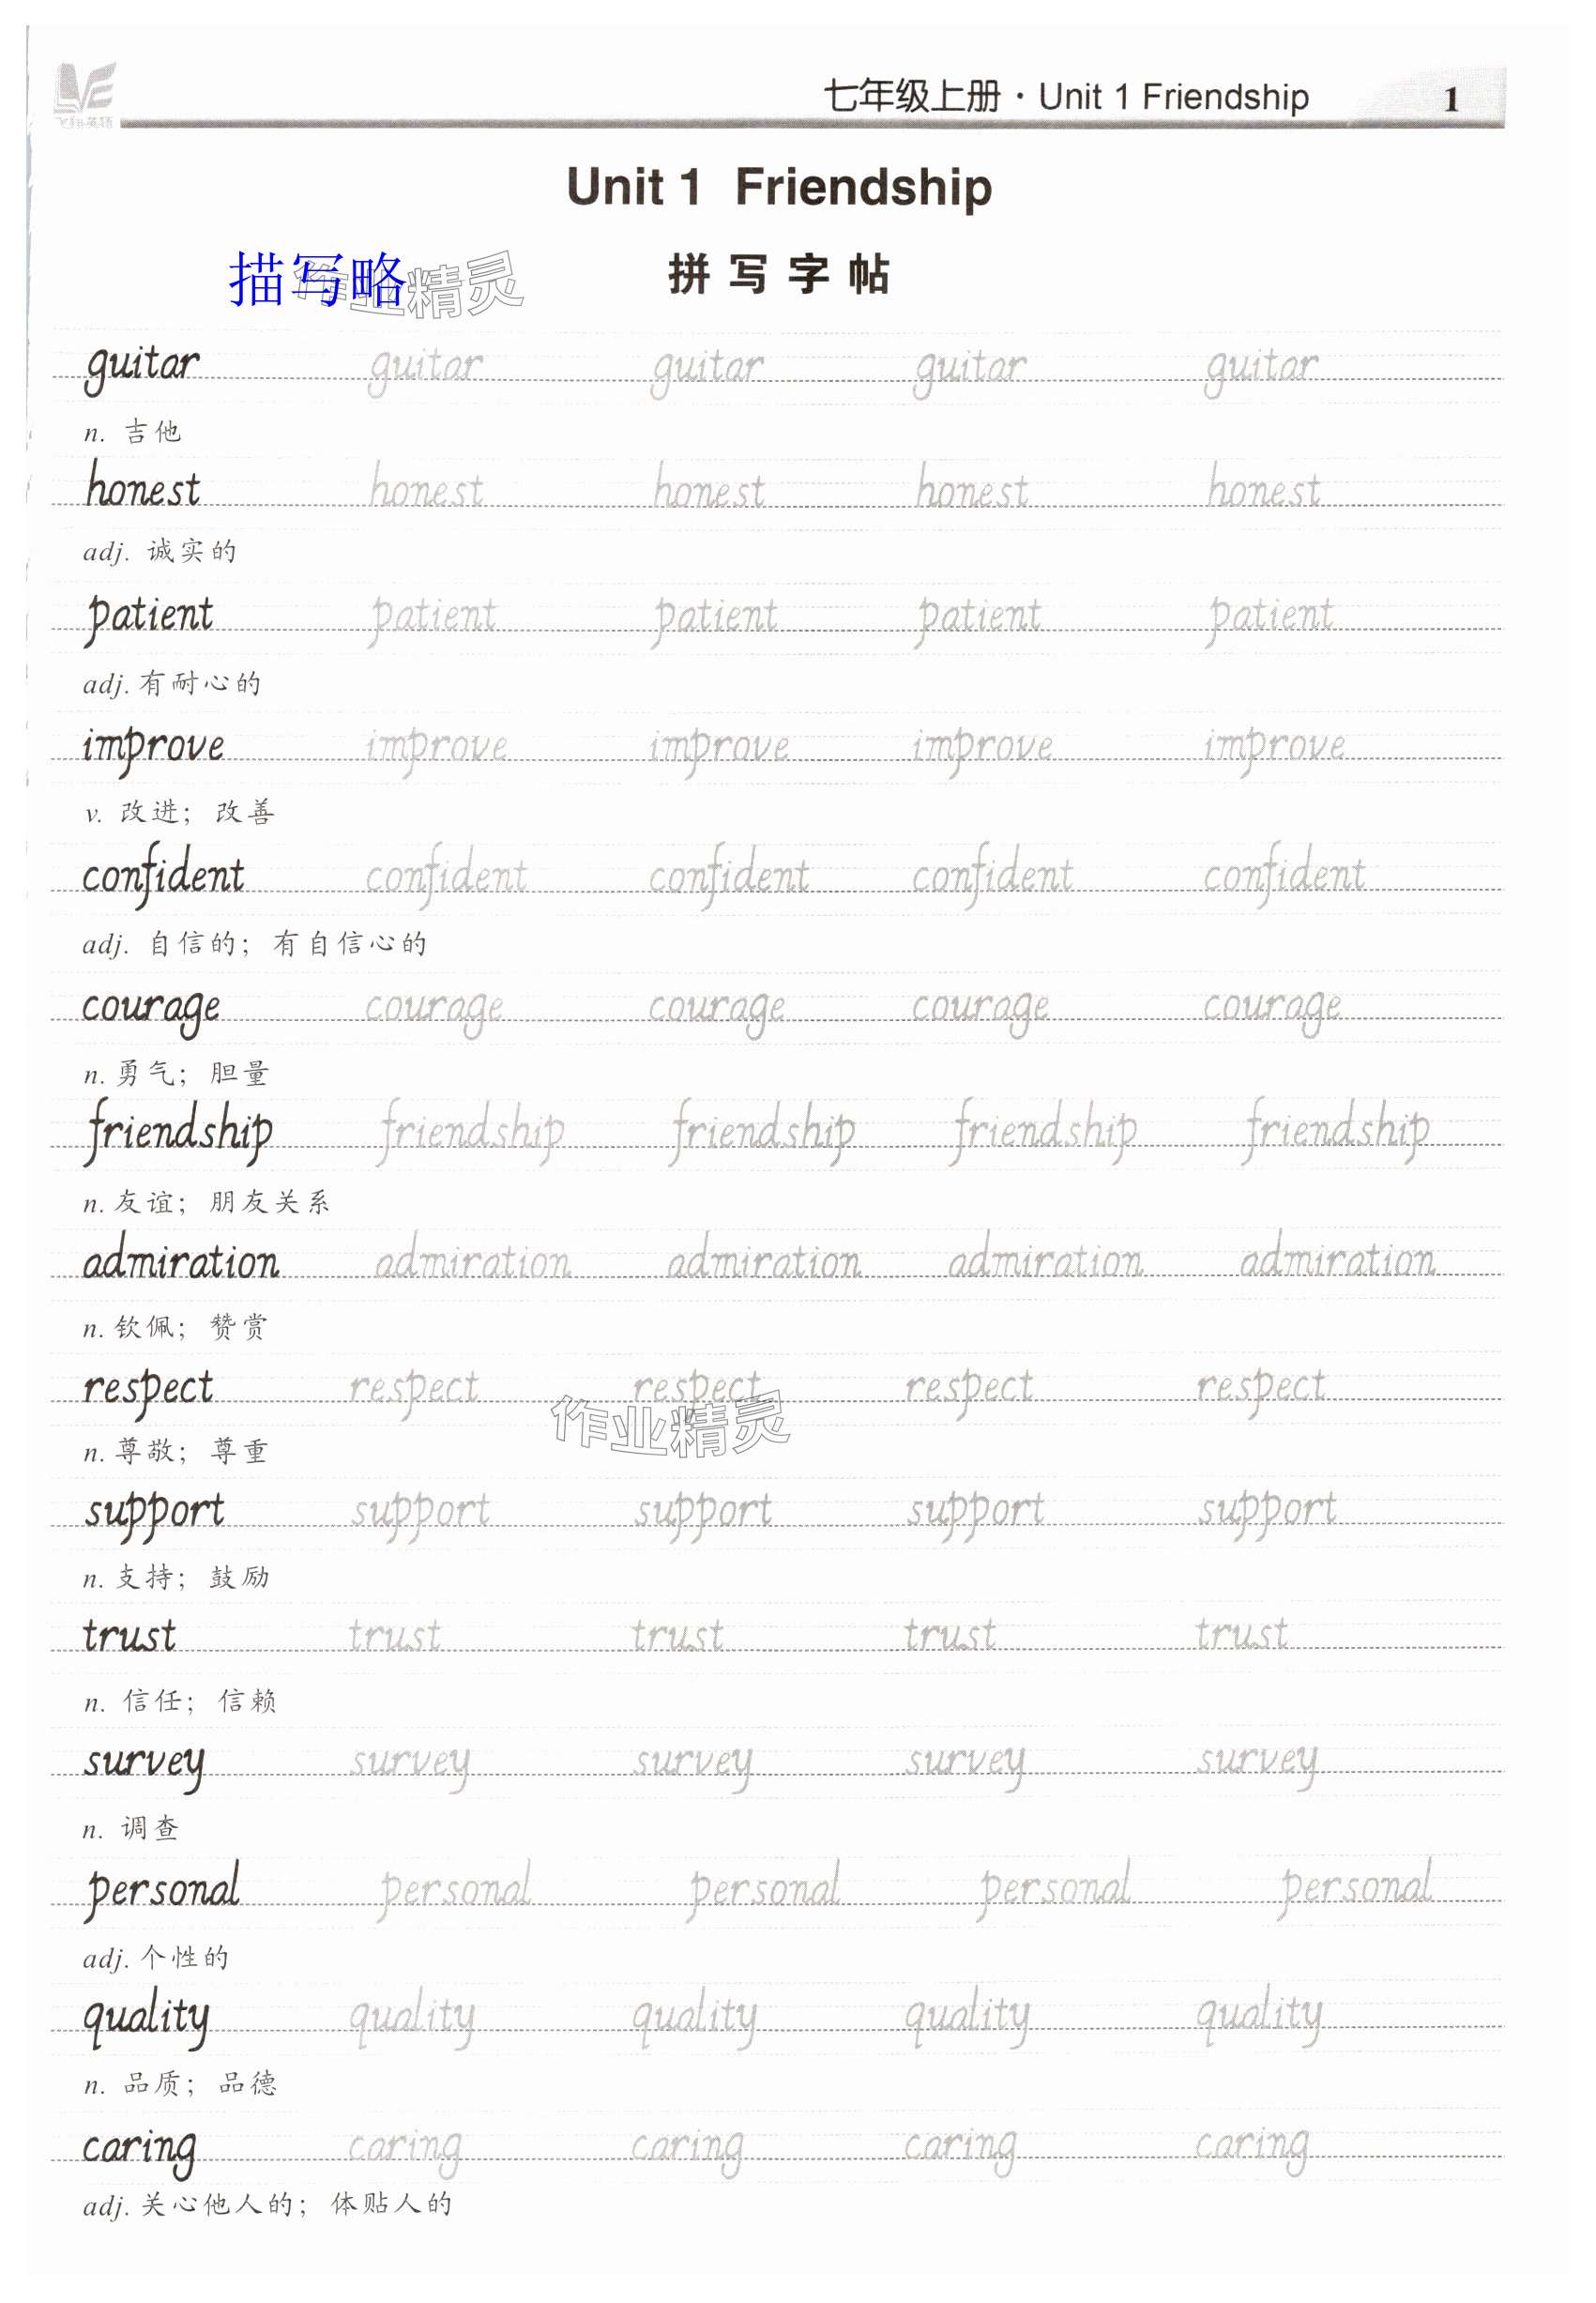 七年级上册·Unit 1 Friendship 1
Unit 1 Friendship
描写略 作业精灵
拼写字帖
guitar guitar guitar guitar guitar
n. 吉他
honest honest honest honest honest
adj. 诚实的
patient patient patient patient patient
adj. 有耐心的
improve improve improve improve improve
v. 改进；改善
confident confident confident confident confident
adj. 自信的；有自信心的
courage courage courage courage courage
n. 勇气；胆量
friendship friendship friendship friendship friendship
n. 友谊；朋友关系
admiration admiration admiration admiration admiration
n. 钦佩；赞赏
respect respect respect respect respect
作业精灵
n. 尊敬；尊重
support support support support support
n. 支持；鼓励
trust trust trust trust trust
n. 信任；信赖
survey survey survey survey survey
n. 调查
personal personal personal personal personal
adj. 个性的
quality quality quality quality quality
n. 品质；品德
caring caring caring caring caring
adj. 关心他人的；体贴人的